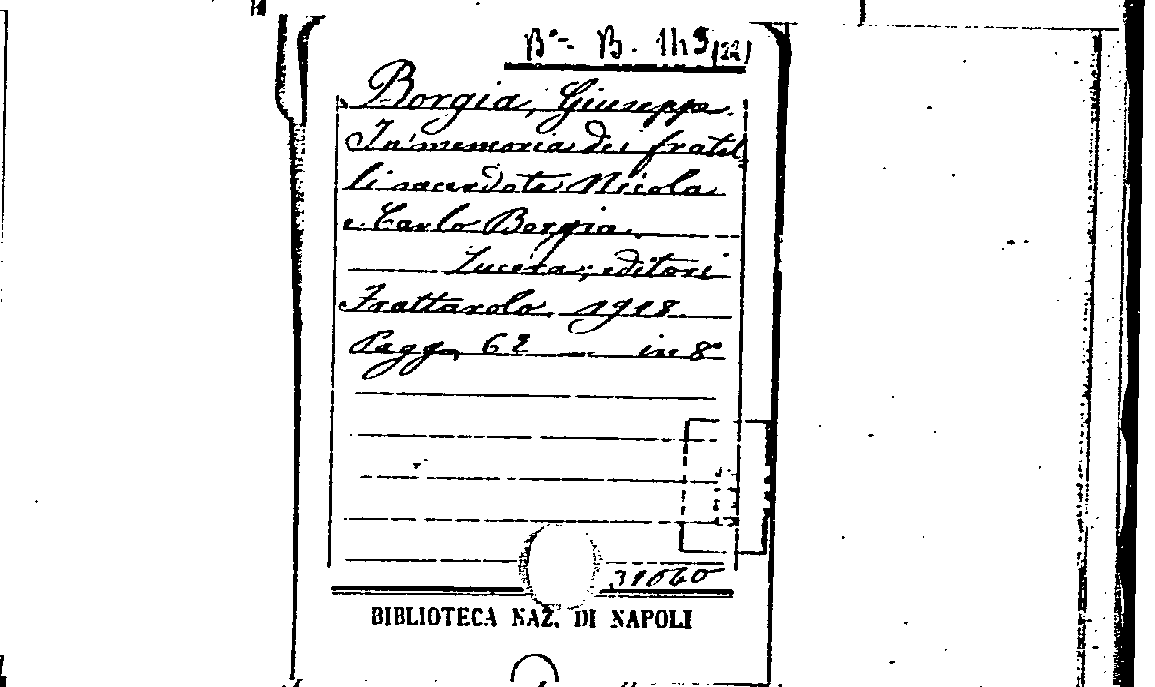 Bº- B. 1h3 (22)
Borgia, Giuseppe.
In memoria dei fratel
li sacerdote Nicola
e Carlo Borgia.
Lucera; editori
Frattarolo 1918
Pagg. 62 in 8º
31060
BIBLIOTECA NAZ. DI NAPOLI